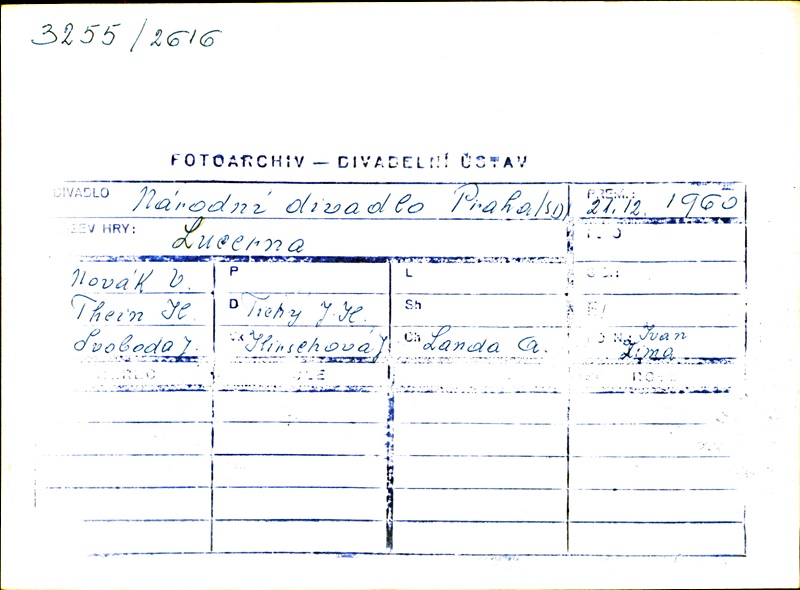 3255/2616
FOTOARCHIV — DIVADELNÍ ÚSTAV
DIVADLO Národní divadlo Praha/SD/ PREM.: 21.12. 1960
ZEV HRY: Lucerna
Novák V. P L
Thein H. D Tichý J.H. Sh
Svoboda J. Hirschová J. Ch Landa A. Ivan
Zima